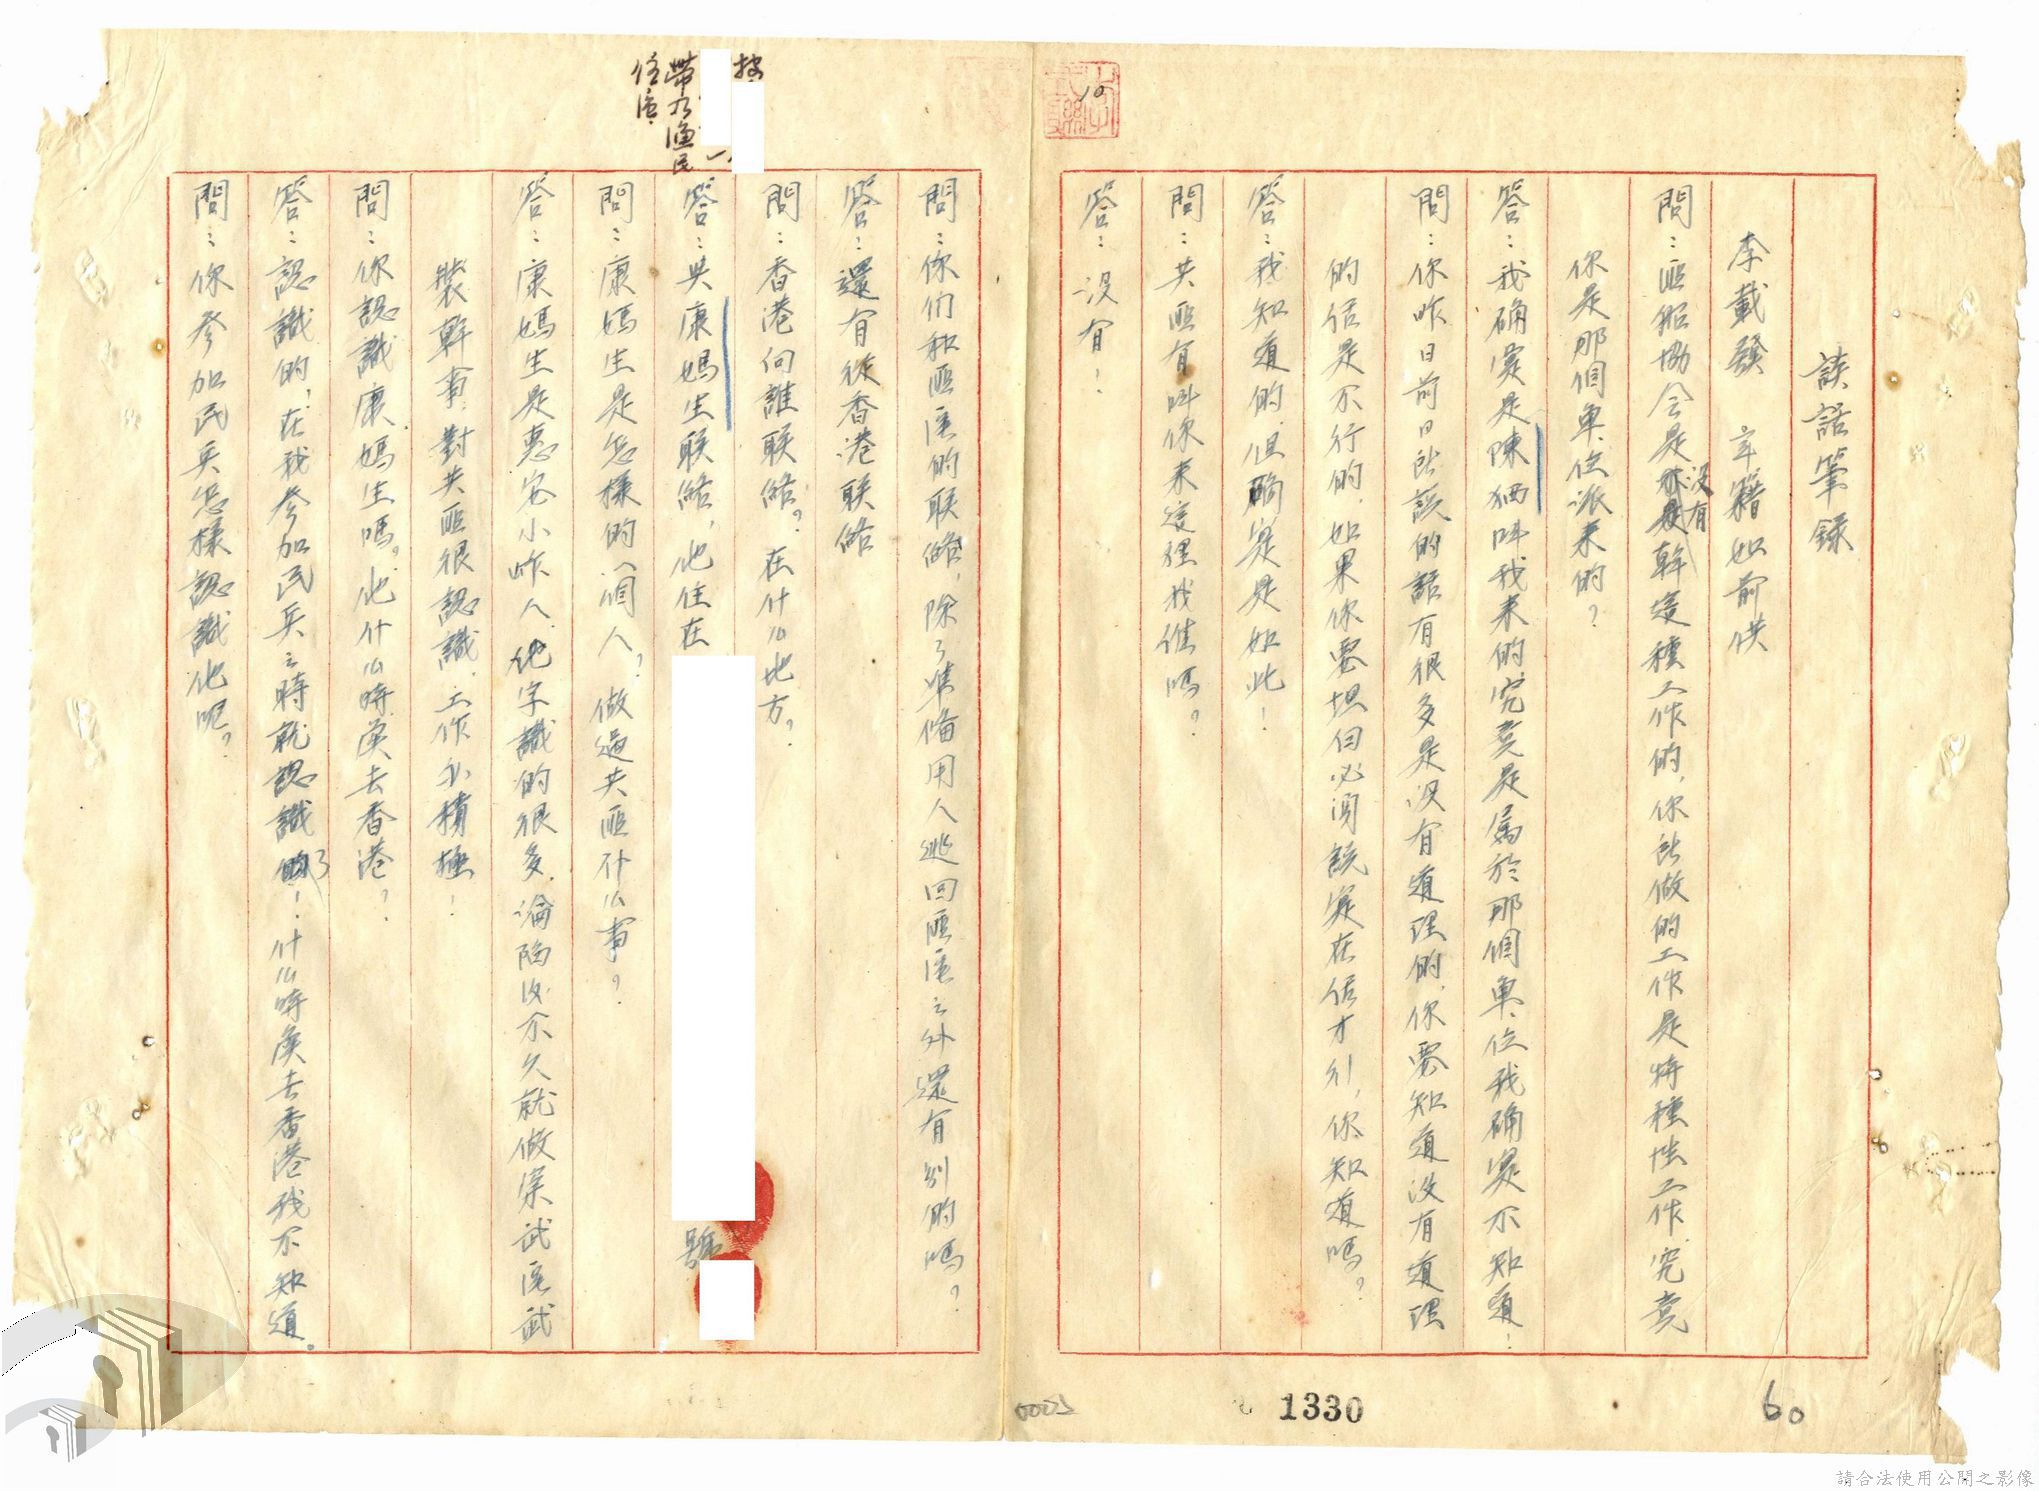 談話筆錄
李載發 年籍如前供
問：匪船協会是沒有幹這種工作的，你所做的工作是特種性工作，究竟
你是那個單位派来的？
答：我确实是陳㧱叫我来的，究竟是属於那個單位我确实不知道！
問：你昨日前日所談的話有很多是没有道理的，你要知道没有道理
的話是不行的，如果你要坦白必須說实在話才行，你知道嗎？
答：我知道的，但确实是如此！
問：共匪有叫你来這裡找誰嗎？
答：没有！
問：你们和匪區的联絡，除了準俻用人逃回匪區之外還有别的嗎？
答：還有從香港联絡
問：香港向誰联絡？在什么地方？
答：與康媽生联絡，他住在
號
問：康媽生是怎樣的一個人？做過共匪什么事？
答：康媽生是惠安小岞人，他字識的很多，淪陷後不久就做崇武區武
裝幹事，對共匪很認識，工作介積極！
問：你認識康媽生嗎？他什么時候去香港？
答：認識的，在我参加民兵之時就認識了！什么時候去香港我不知道。
問：你参加民兵怎樣認識他呢？
帶有漁民
任
10
0005
1330
60
請合法使用公開之影像